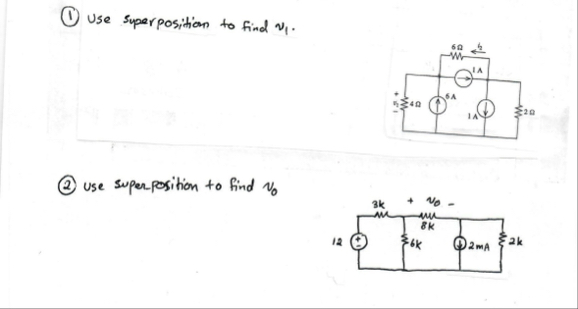 ① Use superposition to find v₁.
6Ω i₂
1A
+
v₁ 4Ω
-
6A
1A
2Ω
② use superposition to find v₀
3k + v₀ -
8k
12 + - 6k 2mA 2k